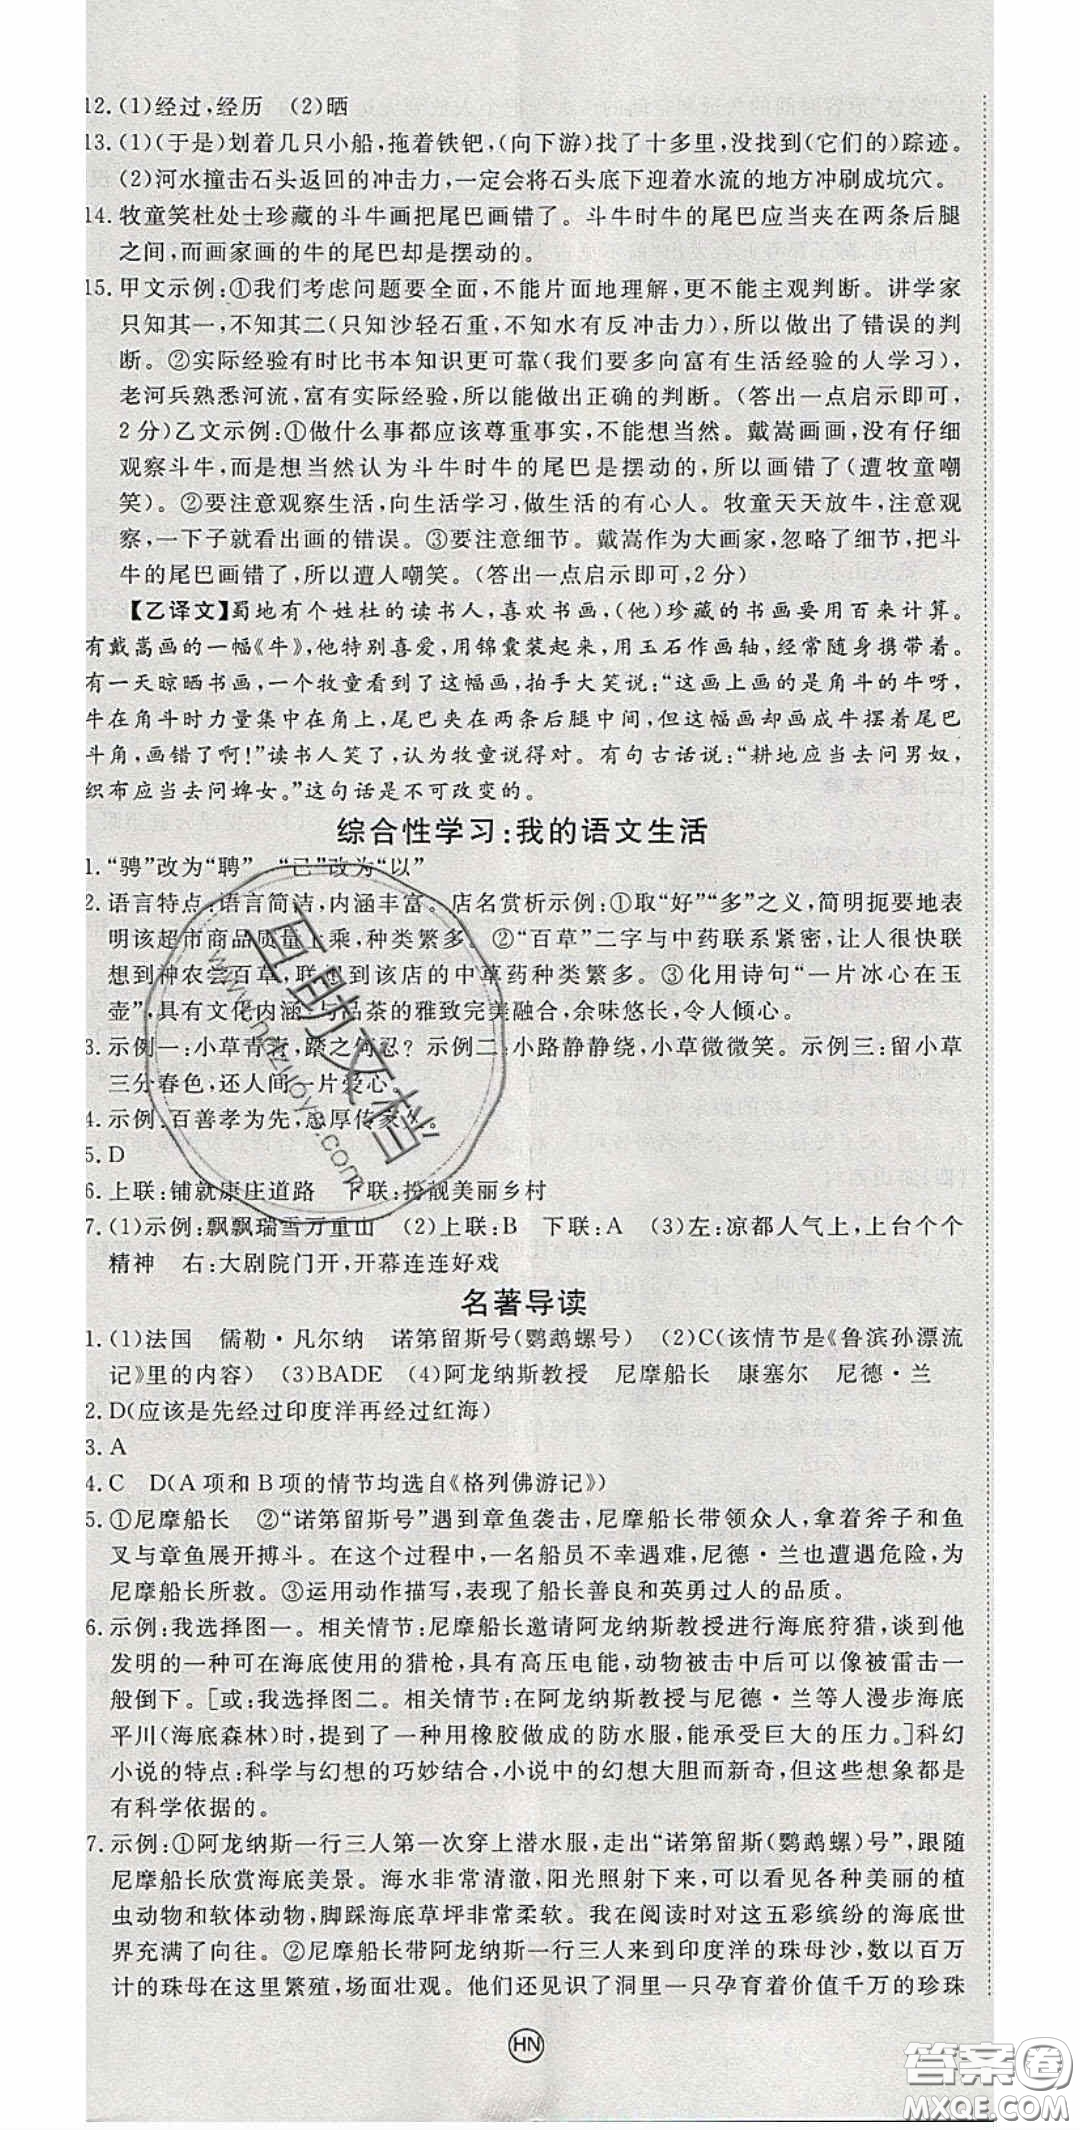 12.(1)经过,经历　(2)晒
13.(1)(于是)划着几只小船,拖着铁钯,(向下游)找了十多里,没找到(它们的)踪迹。
(2)河水撞击石头返回的冲击力,一定会将石头底下迎着水流的地方冲刷成坑穴。
14.牧童笑杜处士珍藏的斗牛画把尾巴画错了。斗牛时牛的尾巴应当夹在两条后腿
之间,而画家画的牛的尾巴却是摆动的。
15.甲文示例:①我们考虑问题要全面,不能片面地理解,更不能主观判断。讲学家
只知其一,不知其二(只知沙轻石重,不知水有反冲击力),就做出了错误的判
断。②实际经验有时比书本知识更可靠(我们要多向富有生活经验的人学习),
老河兵熟悉河流,富有实际经验,所以能做出正确的判断。(答出一点启示即可,
2分)乙文示例:①做什么事都应该尊重事实,不能想当然。戴嵩画画,没有仔细
观察斗牛,而是想当然认为斗牛时牛的尾巴是摆动的,所以画错了(遭牧童嘲
笑)。②要注意观察生活,向生活学习,做生活的有心人。牧童天天放牛,注意观
察,一下子就看出画的错误。③要注意细节。戴嵩作为大画家,忽略了细节,把斗
牛的尾巴画错了,所以遭人嘲笑。(答出一点启示即可,2分)
【乙译文】蜀地有个姓杜的读书人,喜欢书画,(他)珍藏的书画要用百来计算。
有戴嵩画的一幅《牛》,他特别喜爱,用锦囊装起来,用玉石作画轴,经常随身携带着。
有一天晾晒书画,一个牧童看到了这幅画,拍手大笑说:“这画上画的是角斗的牛呀,
牛在角斗时力量集中在角上,尾巴夹在两条后腿中间,但这幅画却画成牛摆着尾巴
斗角,画错了啊!”读书人笑了,认为牧童说得对。有句古话说:“耕地应当去问男奴,
织布应当去问婢女。”这句话是不可改变的。
综合性学习:我的语文生活
1.“骋”改为“聘”　“己”改为“以”
2.语言特点:语言简洁,内涵丰富。店名赏析示例:①取“好”“多”之义,简明扼要地表
明该超市商品质量上乘,种类繁多。②“百草”二字与中药联系紧密,让人很快联
想到神农尝百草,联想到该店的中草药种类繁多。③化用诗句“一片冰心在玉
壶”,具有文化内涵,与品茶的雅致完美融合,余味悠长,令人倾心。
3.示例一:小草青青,踏之何忍?示例二:小路静静绕,小草微微笑。示例三:留小草
三分春色,还人间一片爱心。
4.示例:百善孝为先,忠厚传家久。
5.D
6.上联:铺就康庄道路　下联:扮靓美丽乡村
7.(1)示例:飘飘瑞雪万重山　(2)上联:B　下联:A　(3)左:凉都人气上,上台个个
精神　右:大剧院门开,开幕连连好戏
名著导读
1.(1)法国　儒勒·凡尔纳　诺第留斯号(鹦鹉螺号)　(2)C(该情节是《鲁滨孙漂流
记》里的内容)　(3)BADE　(4)阿龙纳斯教授　尼摩船长　康塞尔　尼德·兰
2.D(应该是先经过印度洋再经过红海)
3.A
4.C　D(A项和B项的情节均选自《格列佛游记》)
5.①尼摩船长　②“诺第留斯号”遇到章鱼袭击,尼摩船长带领众人,拿着斧子和鱼
叉与章鱼展开搏斗。在这个过程中,一名船员不幸遇难,尼德·兰也遭遇危险,为
尼摩船长所救。③运用动作描写,表现了船长善良和英勇过人的品质。
6.示例:我选择图一。相关情节:尼摩船长邀请阿龙纳斯教授进行海底狩猎,谈到他
发明的一种可在海底使用的猎枪,具有高压电能,动物被击中后可以像被雷击一
般倒下。[或:我选择图二。相关情节:在阿龙纳斯教授与尼德·兰等人漫步海底
平川(海底森林)时,提到了一种用橡胶做成的防水服,能承受巨大的压力。]科幻
小说的特点:科学与幻想的巧妙结合,小说中的幻想大胆而新奇,但这些想象都是
有科学依据的。
7.示例:①阿龙纳斯一行三人第一次穿上潜水服,走出“诺第留斯(鹦鹉螺)号”,跟随
尼摩船长欣赏海底美景。海水非常清澈,阳光照射进来,可以看见各种美丽的植
虫动物和软体动物,脚踩海底草坪非常柔软。我在阅读时对这五彩缤纷的海底世
界充满了向往。②尼摩船长带阿龙纳斯一行三人来到印度洋的珠母沙,数以百万
计的珠母在这里繁殖,场面壮观。他们还见识了洞里一只孕育着价值千万的珍珠
HN
互助文档
www.hdzuoye.com
答案圈
MXQE.COM